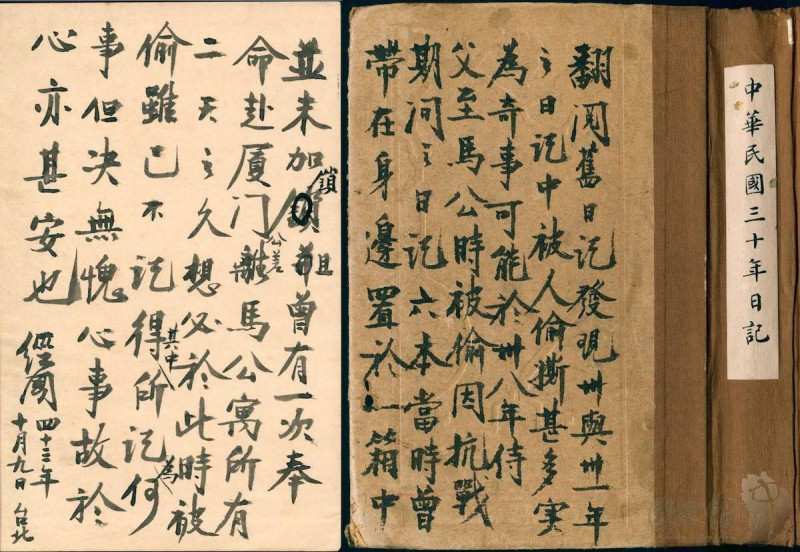 中華民國三十年日記
翻閱舊日記發現卅與卅一年
之日記中被人偷撕甚多實
為奇事可能於卅八年侍
父至馬公時被偷因抗戰
期间之日記六本當時曾
帶在身邊置於一箱中
並未加鎖且曾有一次奉
命赴厦门公差離馬公寓所有
二天之久想必於此時被
偷雖已不記得其中所記為何
事但決無愧心事故於
心亦甚安也
經國
四十三年
十月九日 台北